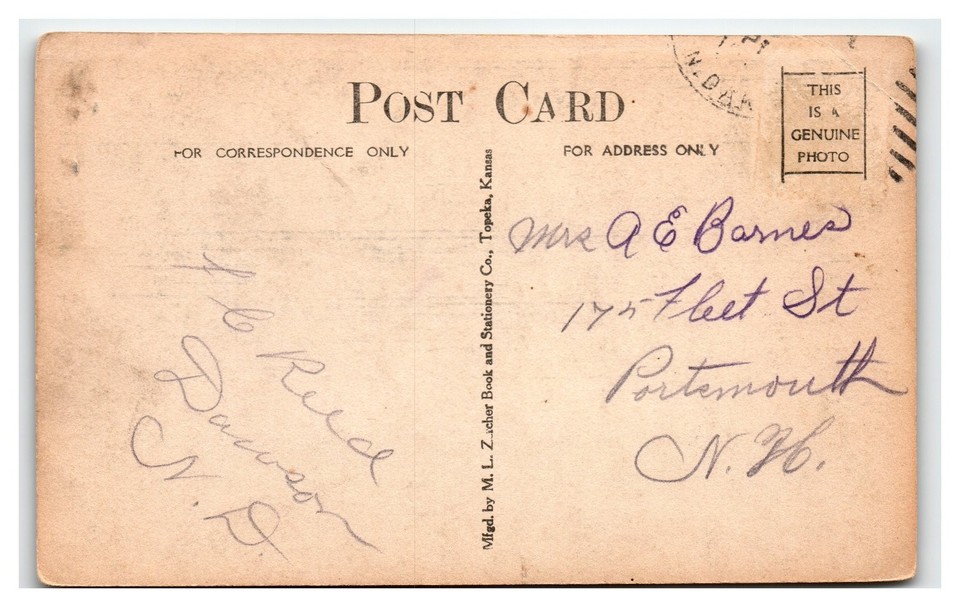 POST CARD
FOR CORRESPONDENCE ONLY
FOR ADDRESS ONLY
N. DAK
THIS
IS A
GENUINE
PHOTO
Mfgd. by M. L. Zercher Book and Stationery Co., Topeka, Kansas
Mrs A E Barnes
175 Fleet St
Portsmouth
N. H.
C Reed
Dawson
N. D.